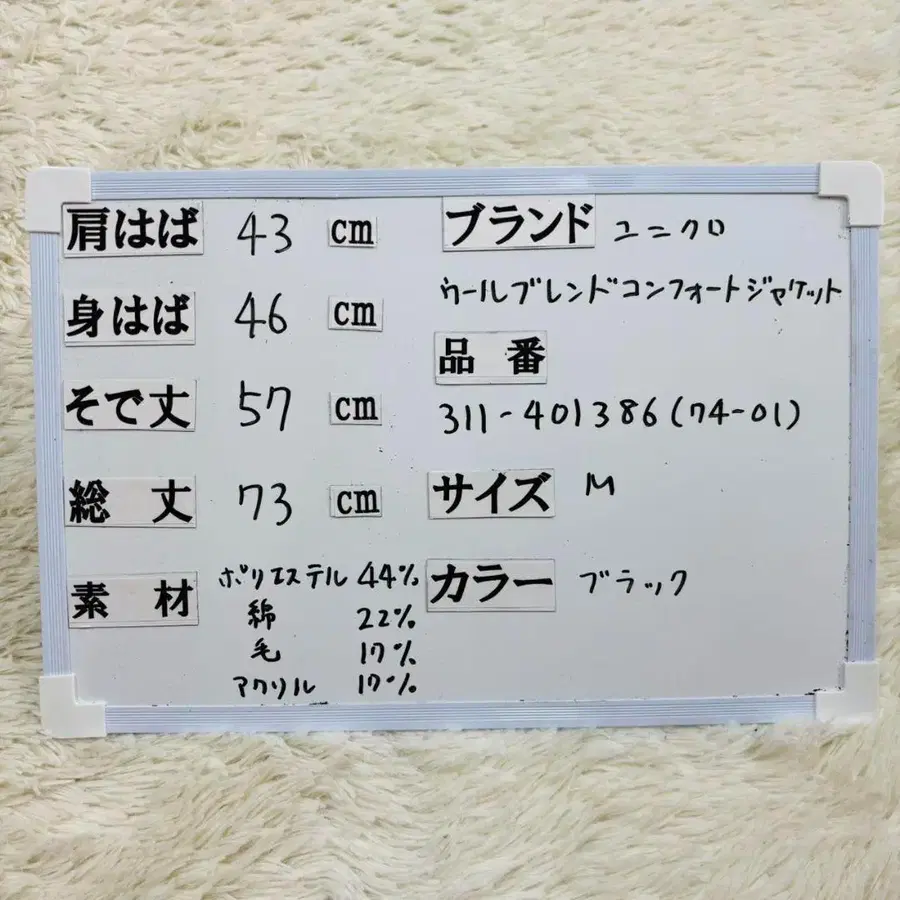 肩はば 43 cm
身はば 46 cm
そで丈 57 cm
総丈 73 cm
素材 ポリエステル 44%
綿 22%
毛 17%
アクリル 17%
ブランド ユニクロ
ウールブレンドコンフォートジャケット
品番
311-401386(74-01)
サイズ M
カラー ブラック